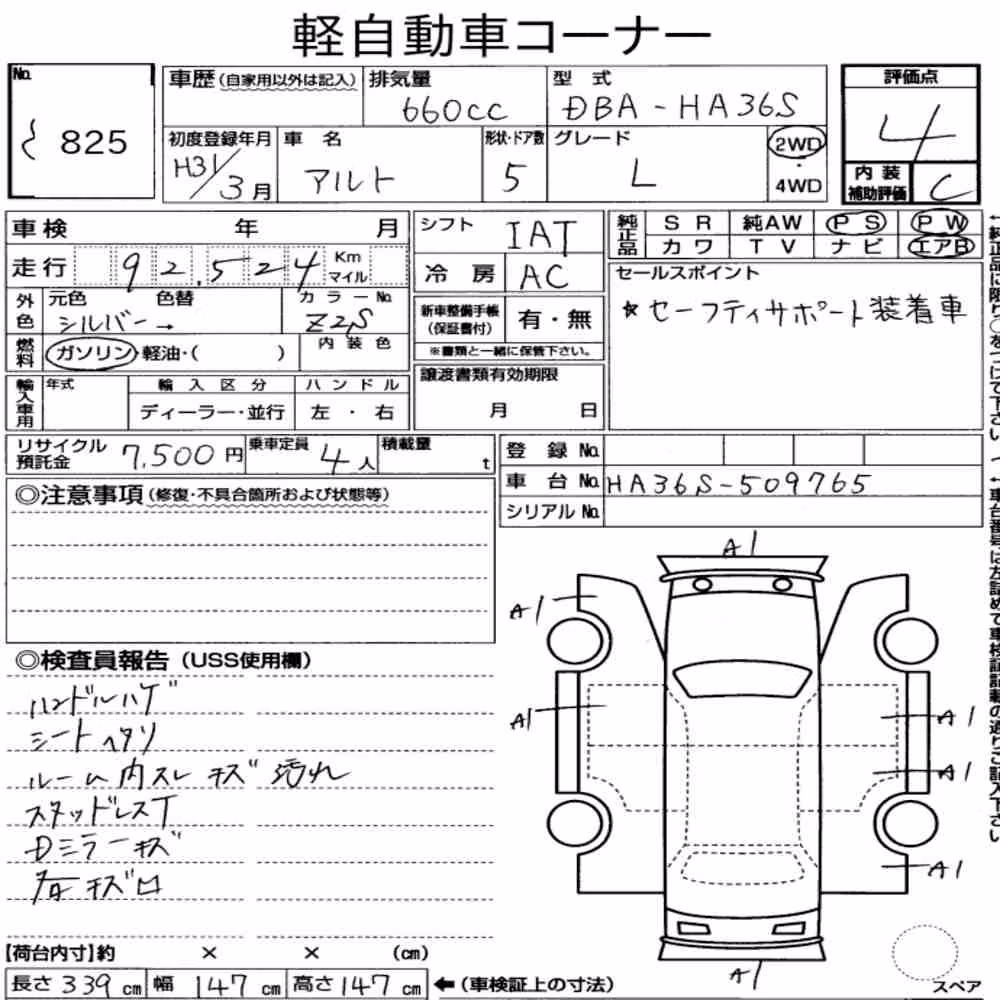 軽自動車コーナー
No.
825
車歴 (自家用以外は記入)
排気量
660cc
型式
DBA-HA36S
評価点
4
初度登録年月
H31/3月
車名
アルト
形状・ドア数
5
グレード
L
2WD
・
4WD
内装補助評価
C
車検 年 月
シフト
IAT
純正品
SR 純AW PS PW
カワ TV ナビ エアB
走行 92,524 Km マイル
冷房 AC
セールスポイント
☆セーフティサポート装着車
外色
元色 色替
シルバー→
カラーNo.
Z2S
新車整備手帳
(保証書付)
有・無
燃料
ガソリン・軽油・( )
内装色
※書類と一緒に保管下さい。
輸入車用
年式
輸入区分
ハンドル
ディーラー・並行
左・右
譲渡書類有効期限
月 日
リサイクル預託金 7,500円
乗車定員 4人
積載量 t
登録No.
車台No. HA36S-509765
シリアルNo.
◎注意事項 (修復・不具合箇所および状態等)
◎検査員報告 (USS使用欄)
ハンドルハゲ
シートヘタリ
ルーム内スレ キズ 汚れ
スタッドレスT
Dミラーキズ
A1
A1
A1
A1
A1
A1
A1
【荷台内寸】約 × × (cm)
長さ 339 cm 幅 147 cm 高さ 147 cm
←(車検証上の寸法)
スペア